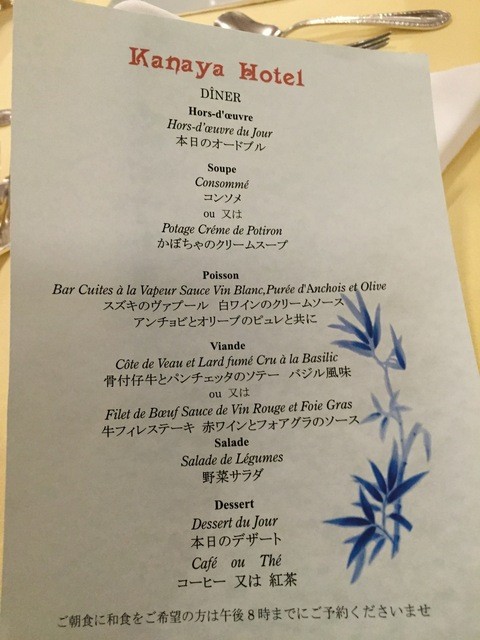 Kanaya Hotel
DÎNER
Hors-d'œuvre
Hors-d'œuvre du Jour
本日のオードブル
Soupe
Consommé
コンソメ
ou 又は
Potage Créme de Potiron
かぼちゃのクリームスープ
Poisson
Bar Cuites à la Vapeur Sauce Vin Blanc,Purée d'Anchois et Olive
スズキのヴァプール 白ワインのクリームソース
アンチョビとオリーブのピュレと共に
Viande
Côte de Veau et Lard fumé Cru à la Basilic
骨付仔牛とパンチェッタのソテー バジル風味
ou 又は
Filet de Bœuf Sauce de Vin Rouge et Foie Gras
牛フィレステーキ 赤ワインとフォアグラのソース
Salade
Salade de Légumes
野菜サラダ
Dessert
Dessert du Jour
本日のデザート
Café ou Thé
コーヒー 又は 紅茶
ご朝食に和食をご希望の方は午後8時までにご予約くださいませ